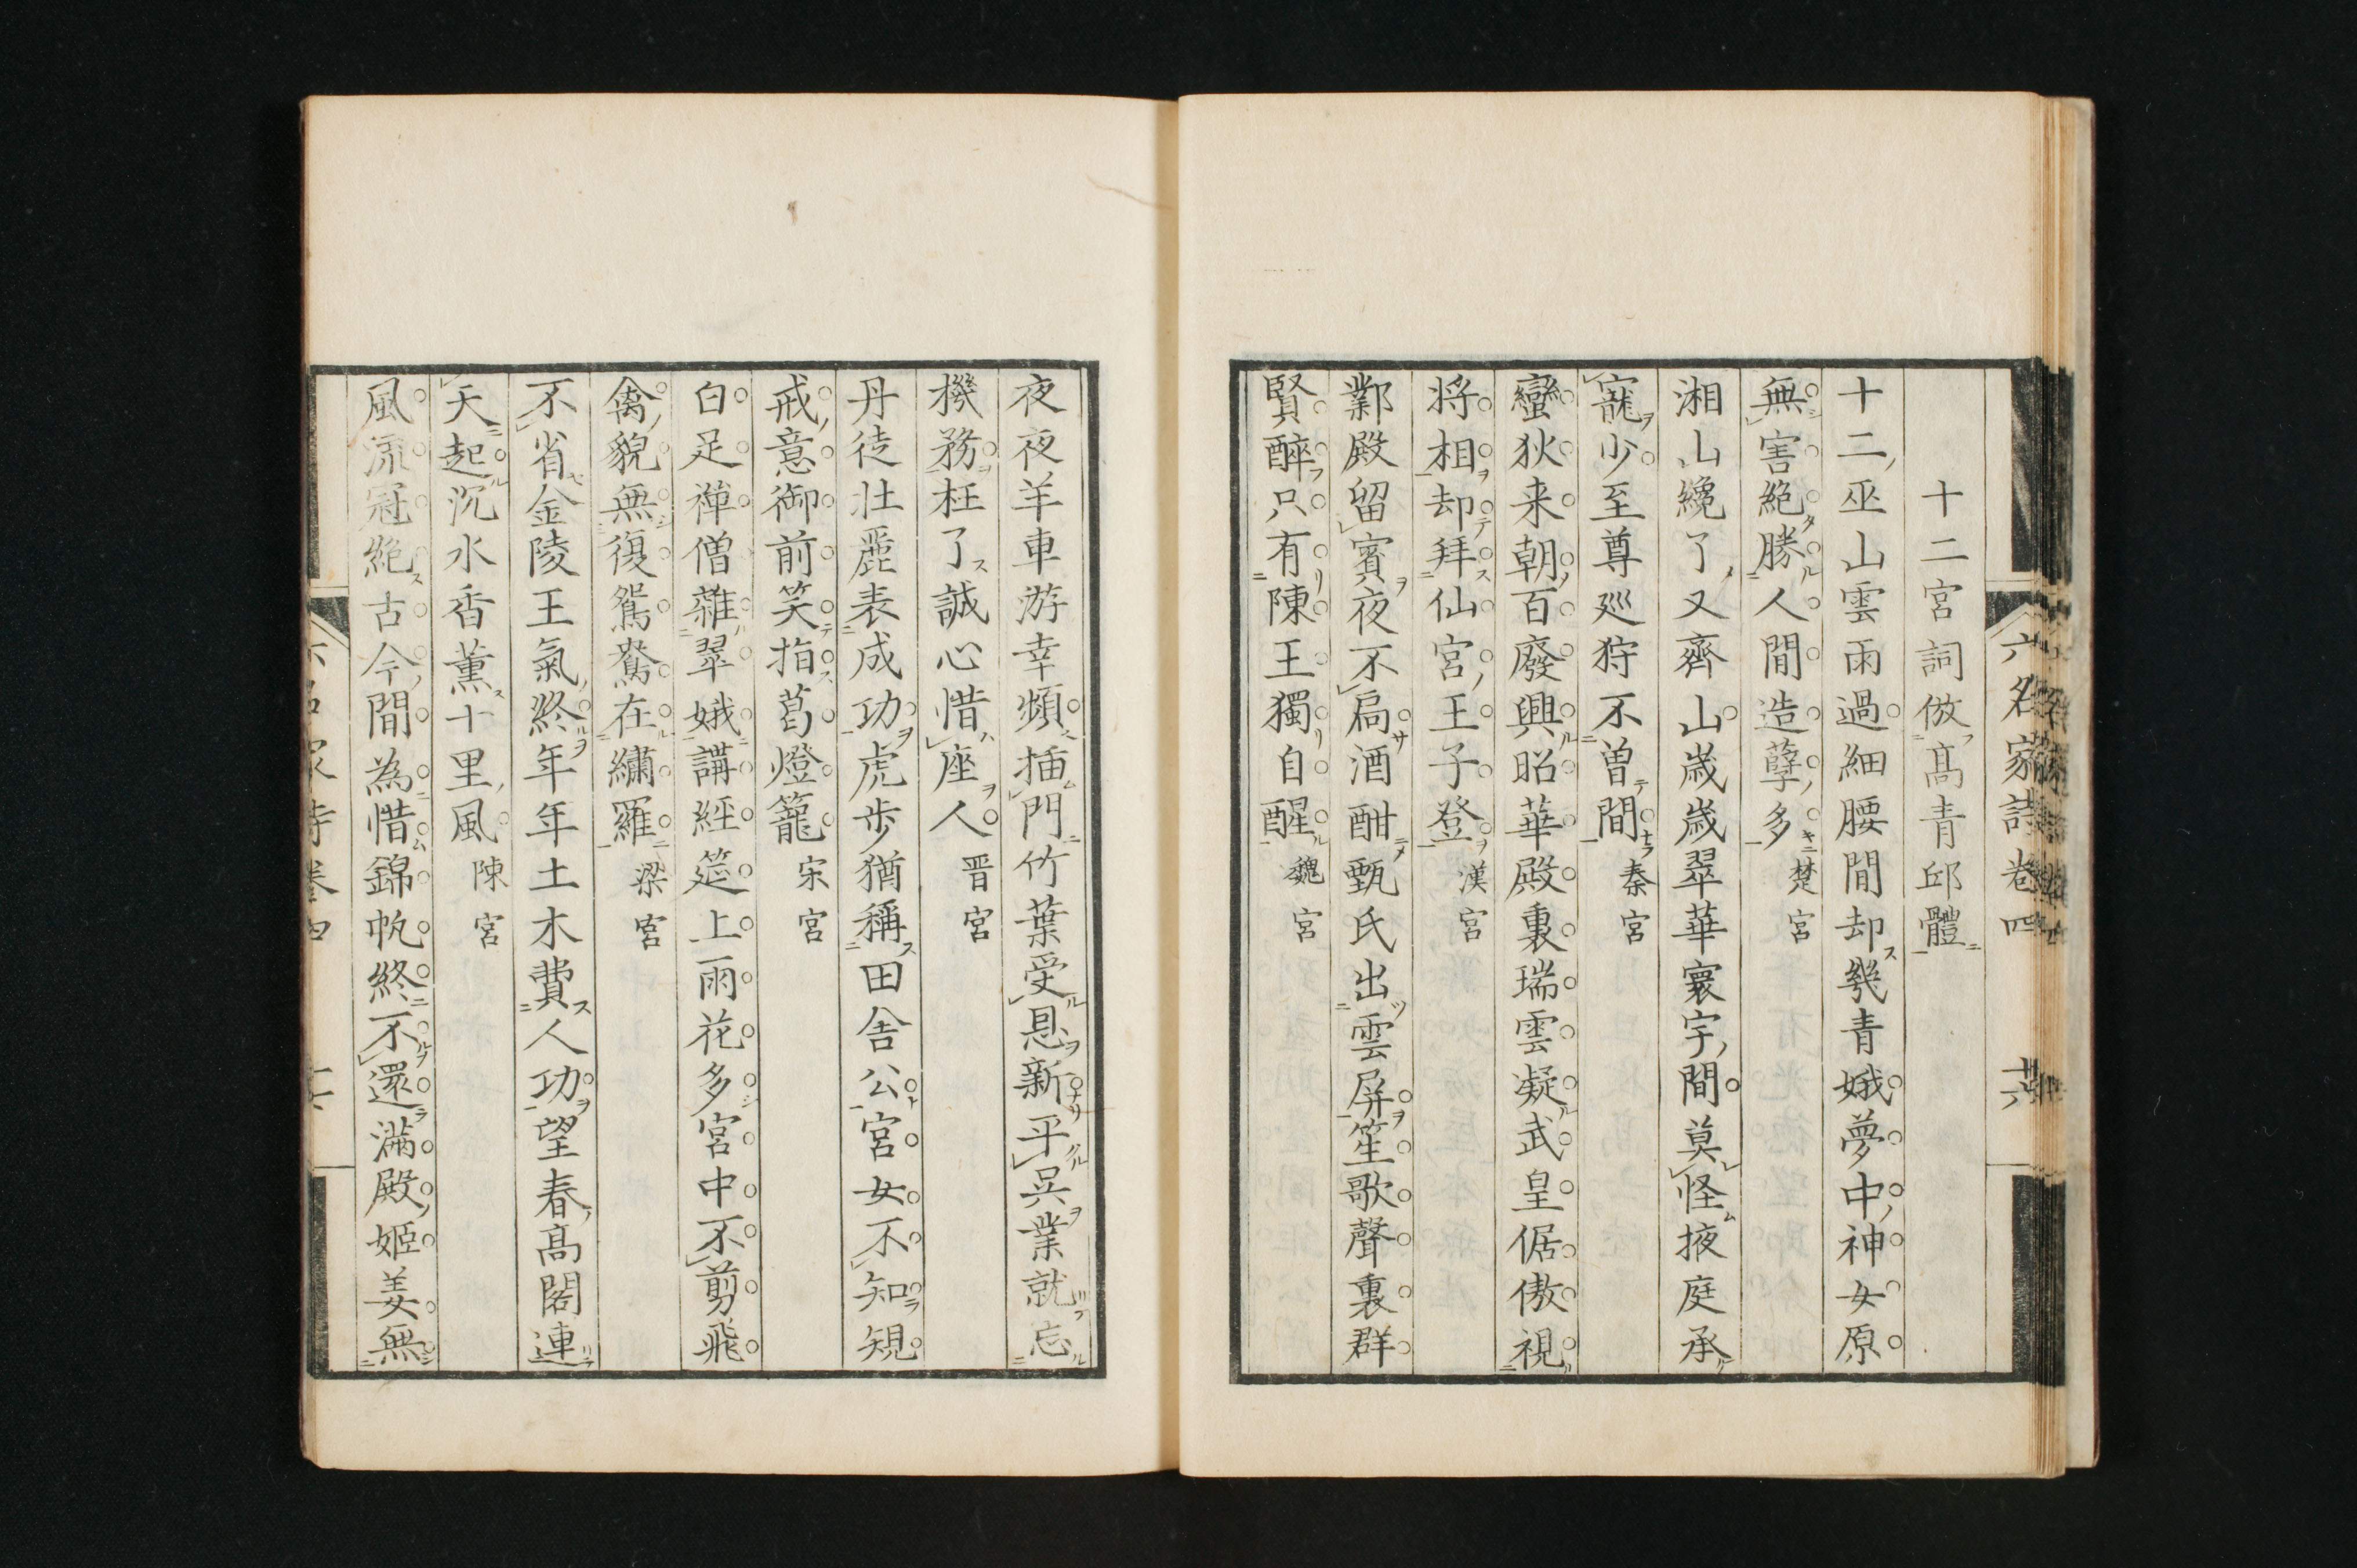 六名家詩卷四
十六
十二宮詞倣高青邱體
十二巫山雲雨過細腰間却幾青娥夢中神女原
無害絶勝人間造孽多 楚宮
湘山纔了又齊山歲歲翠華寰宇間莫怪掖庭承
寵少至尊巡狩不曾間 秦宮
蠻狄来朝百廢興昭華殿裏瑞雲凝武皇倨傲視
将相却拜仙宮王子登 漢宮
鄴殿留賓夜不扃酒酣甄氏出雲屏笙歌聲裏群
賢醉只有陳王獨自醒 魏宮
夜夜羊車游幸頻插門竹葉受恩新平吳業就忘
機務枉了誠心惜座人 晋宮
丹徒壯麗表成功虎歩猶稱田舍公宮女不知規
戒意御前笑指葛燈籠 宋宮
白足禅僧雜翠娥講経筵上雨花多宮中不剪飛
禽貌無復鴛鴦在繡羅 梁宮
不省金陵王氣終年年土木費人功望春高閣連
天起沉水香薰十里風 陳宮
風流冠絶古今間為惜錦帆終不還滿殿姬姜無